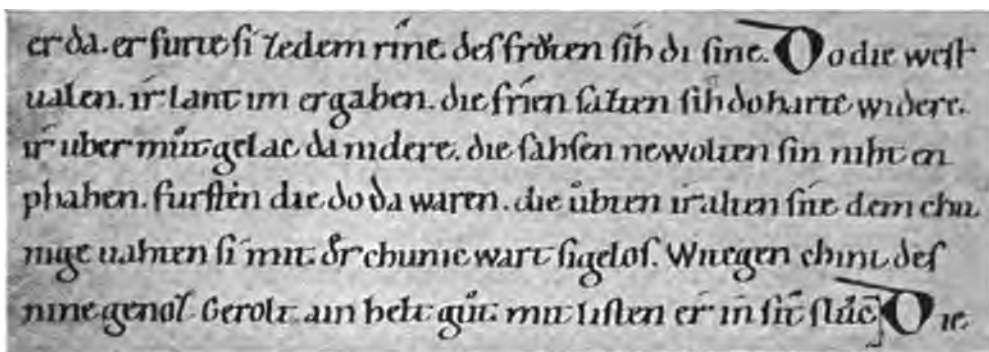 er da. er furte si zedem rine. des frǒten sih di sine. Do die west
ualen. ir lant im ergaben. die frien sahsen sih do harte widere.
ir uber můt gelac da nidere. die sahsen newolten sin niht en
phahen. fursten die do da waren. die ůbten ir alten site dem chu
nige uahten si mit. der chunic wart sigelos. Witegen chint des
nine genoz. Gerolt ain helt gůt. mit listen er in sit slůc. Die